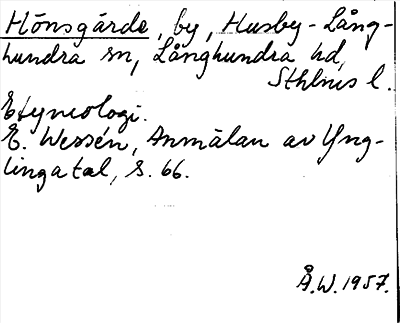 Hönsgärde, by, Husby-Lång-
hundra sn, Långhundra hd,
Sthlms l.
Etymologi.
E. Wessén, Anmälan av Yng-
lingatal, s. 66.
Å.W. 1957.